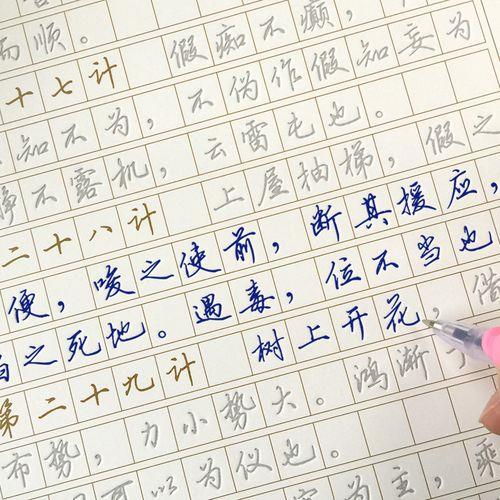 而顺。
十七计 假痴不癫,
知不为, 不伪作假知妄为
静不露机, 云雷屯也。
二十八计 上屋抽梯, 假之
便, 唆之使前, 断其援应,
之死地。遇毒, 位不当也
第二十九计 树上开花, 借
布势, 力小势大。鸿渐于
可以为仪也。
为主, 乘